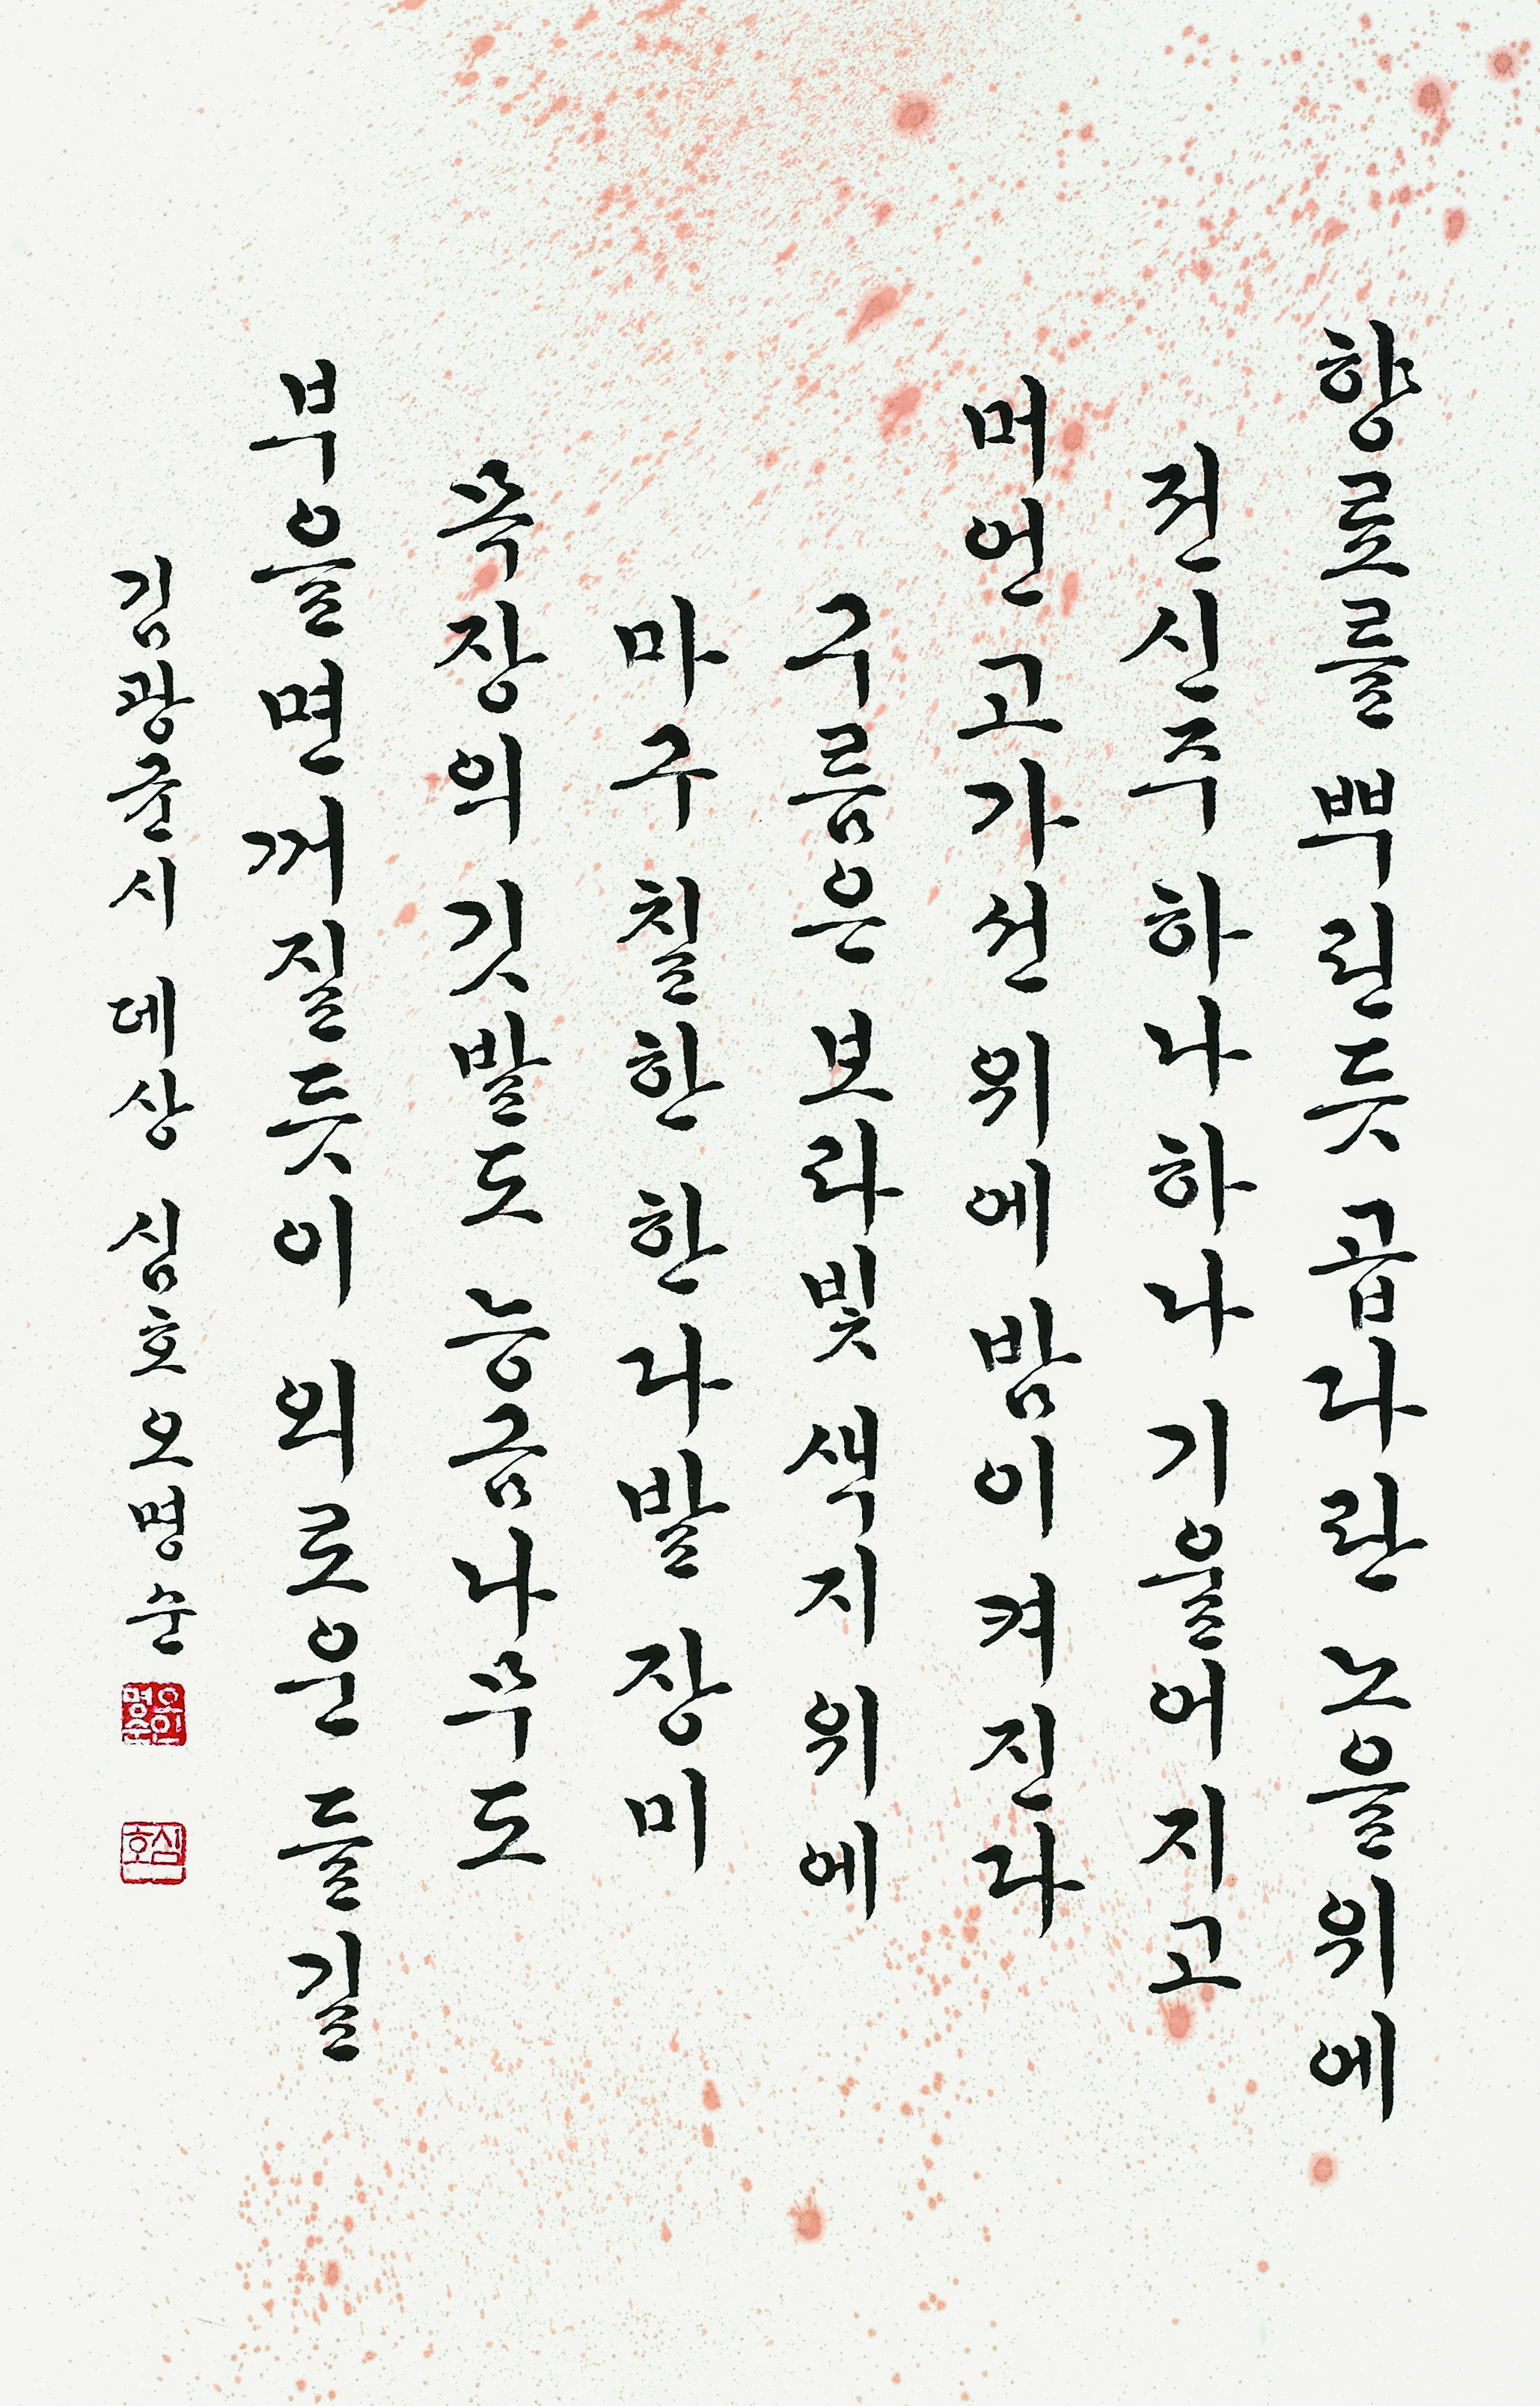 향료를 뿌린듯 곱다란 노을위에
전신주 하나 하나 기울어지고
머언고가선 위에 밤이 켜진다
구름은 보라빛 색지 위에
마구 칠한 한 다발 장미
목장의 깃발도 능금나무도
부을면 꺼질듯이 외로운 들길
김광균시 데상 심호 오명순
오인명순
심호